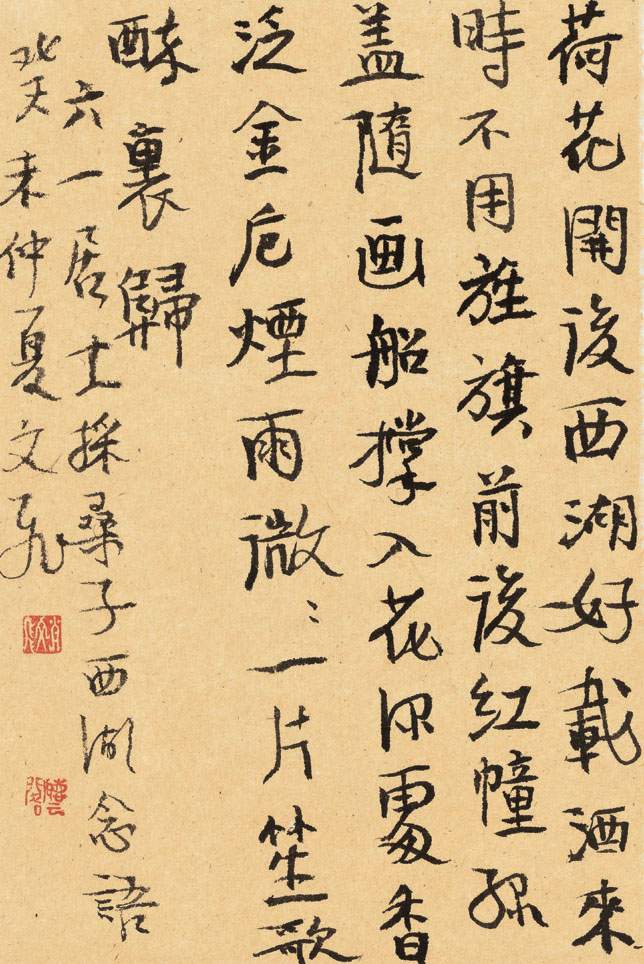 荷花開後西湖好載酒來
時不用旌旗前後紅幢綠
蓋隨画船撑入花深處香
泛金卮煙雨微〻一片笙歌
酔裏歸
六一居士採桑子西湖念語
癸未仲夏文飛